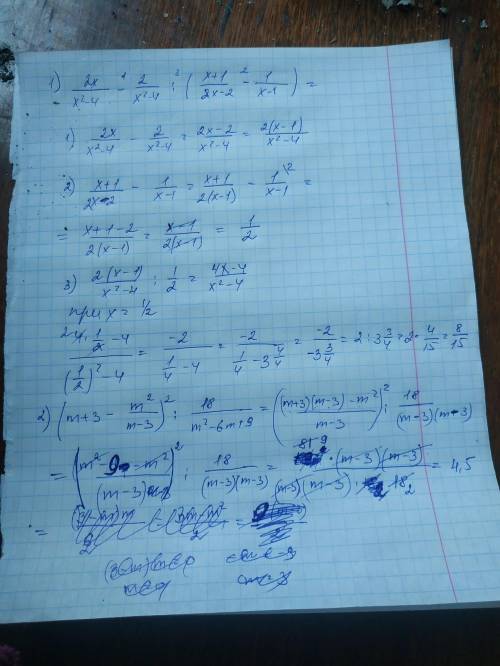 1) 2x/(x²-4) - 2/(x²-4) : ((x+1)/(2x-2) - 1/(x-1)) =
1) 2x/(x²-4) - 2/(x²-4) = (2x-2)/(x²-4) = 2(x-1)/(x²-4)
2) (x+1)/(2x-2) - 1/(x-1) = (x+1)/(2(x-1)) - 1\2/(x-1) =
= (x+1-2)/(2(x-1)) = (x-1)/(2(x-1)) = 1/2
3) 2(x-1)/(x²-4) : 1/2 = (4x-4)/(x²-4)
при x = 1/2
(4·1/2-4)/((1/2)²-4) = -2/(1/4-4) = -2/(1/4-3 4/4) = -2/(-3 3/4) = 2 : 3 3/4 = 2· 4/15 = 8/15
2) (m+3 - m²/(m-3))² : 18/(m²-6m+9) = (((m+3)(m-3)-m²)/(m-3))² : 18/((m-3)(m-3))
= ((m²-9-m²)/(m-3))² : 18/((m-3)(m-3)) = 81 9·(m-3)(m-3)/((m-3)(m-3)·18 2) = 4,5